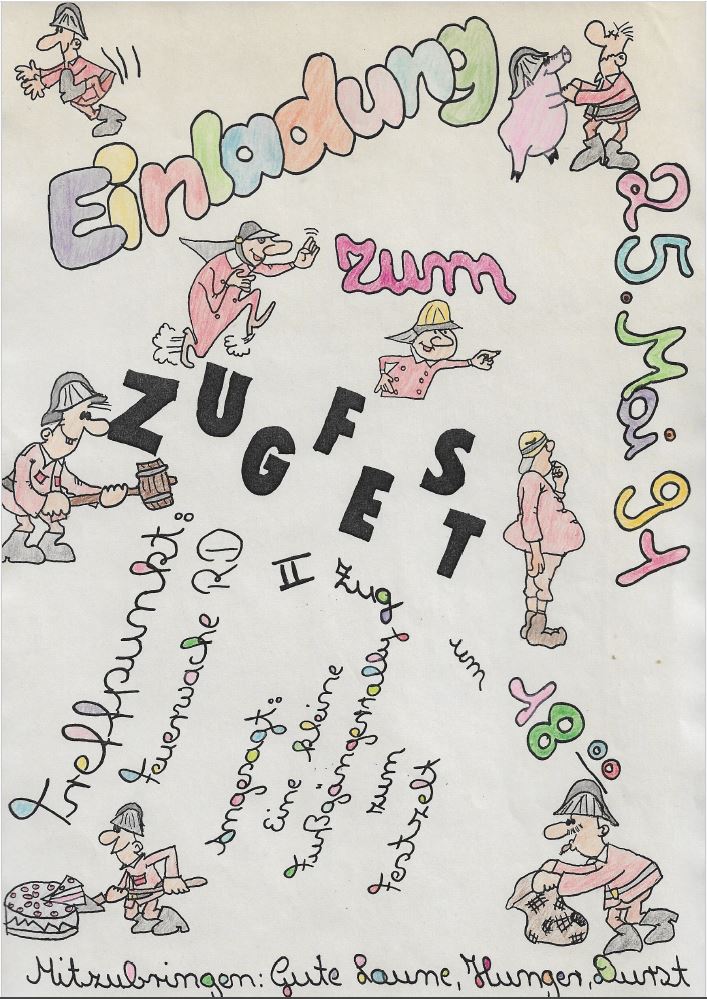 Einladung
zum
ZUGFEST
25. Mai 91
II Zug
um
18.00
Treffpunkt:
Feuerwache RD
Angesagt:
Eine kleine
Fußgängerrallye
zum
Festzelt
Mitzubringen: Gute Laune, Hunger, Durst